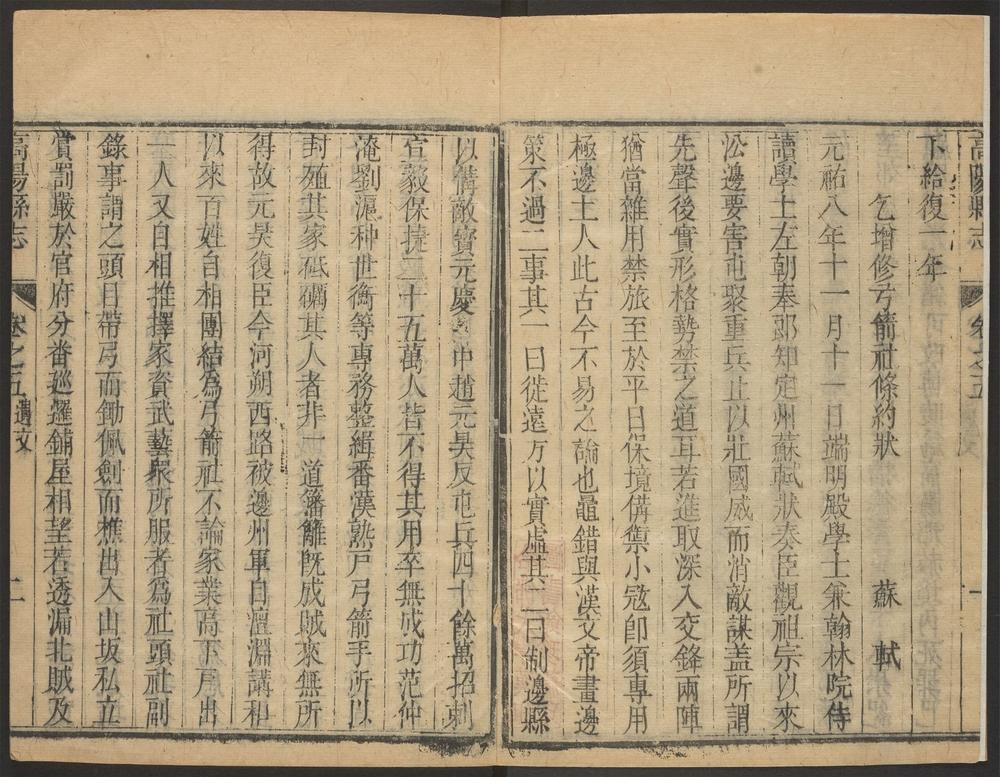 高陽縣志
卷之五
一
下給復一年
乞增修弓箭社條約狀　蘇軾
元祐八年十一月十一日端明殿學士兼翰林院侍
讀學士左朝奉郎知定州蘇軾狀奏臣觀祖宗以來
㳂邊要害屯聚重兵止以壯國威而消敵謀蓋所謂
先聲後實形格勢禁之道耳若進取深入交鋒兩陣
猶當雜用禁旅至於平日保境備禦小冦卽須專用
極邊土人此古今不易之論也鼂錯與漢文帝畫邊
策不過二事其一曰徙遠方以實虛其二曰制邊縣
以備敵寶元慶𠯁中趙元昊反屯兵四十餘萬招刺
宣毅保捷二十五萬人皆不得其用卒無成功范仲
淹劉滬种世衡等專務整緝番漢熟戸弓箭手所以
封殖其家砥礪其人者非一道籓籬旣成賊來無所
得故元昊復臣今河朔西路被邊州軍自澶淵講和
以來百姓自相團結爲弓箭社不論家業高下戸出
一人又自相推擇家資武藝衆所服者爲社頭社副
錄事謂之頭目帶弓而鋤佩劍而樵出入山坂私立
賞罰嚴於官府分番廵邏鋪屋相望若透漏北賊及
高陽縣志
卷之五遺文
二